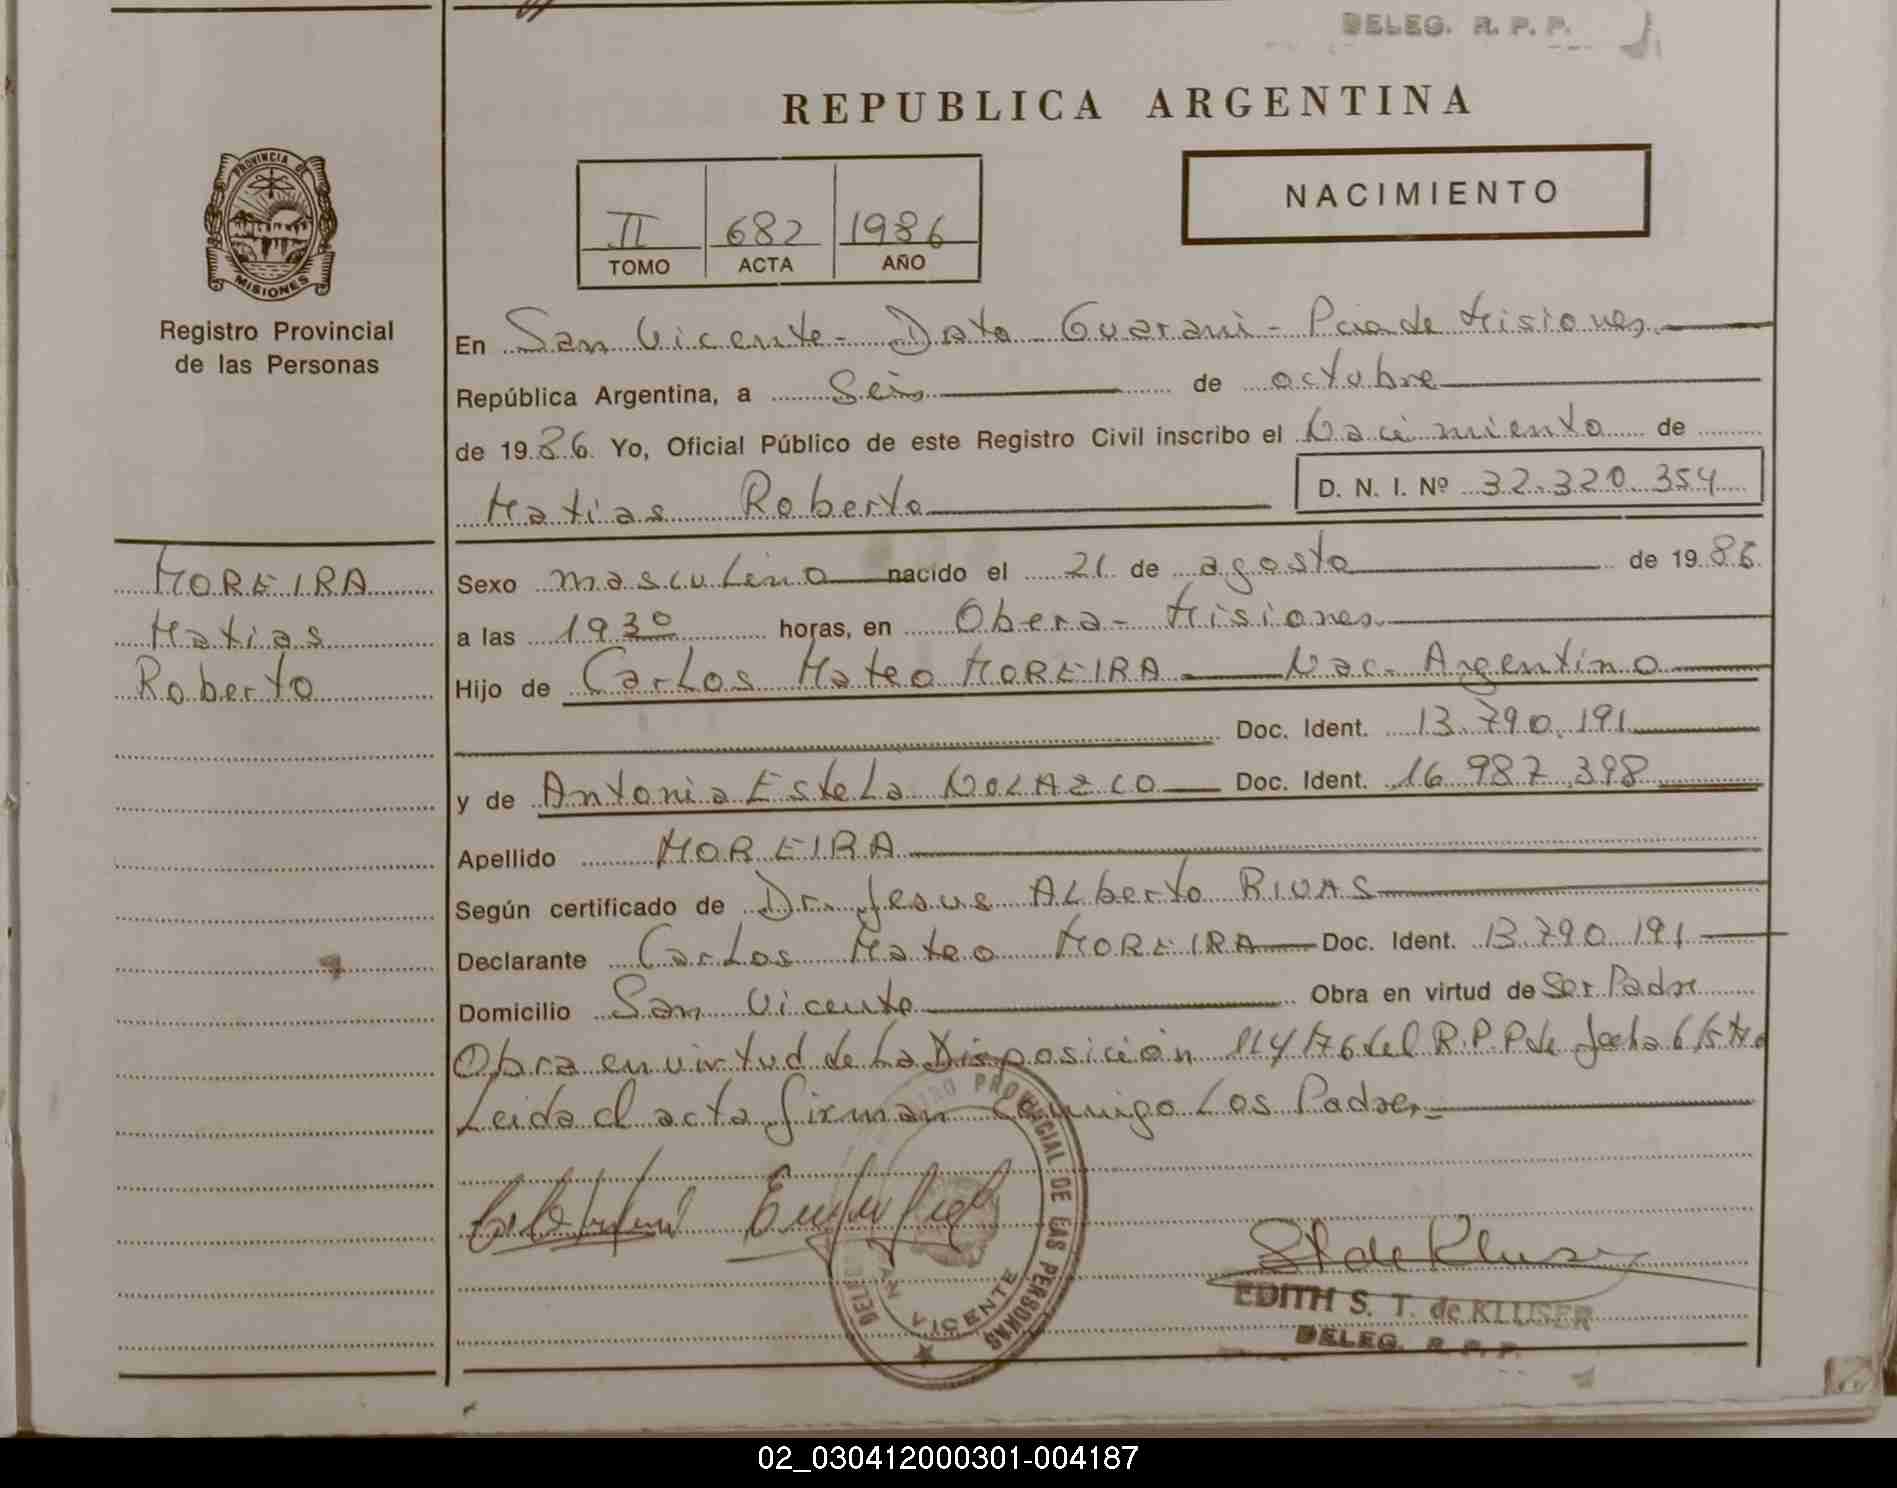 DELEG. R. P. P.
REPUBLICA ARGENTINA
PROVINCIA DE
MISIONES
Registro Provincial
de las Personas
NACIMIENTO
II 682 1986
TOMO ACTA AÑO
En San Vicente - Dpto Guarani - Pcia de Misiones
República Argentina, a Seis de octubre
de 1986. Yo, Oficial Público de este Registro Civil inscribo el Nacimiento de
Matias Roberto D. N. I. Nº 32.320.354
MOREIRA
Matias
Roberto
Sexo masculino nacido el 21 de agosto de 1986
a las 19 30 horas, en Obera - Misiones
Hijo de Carlos Mateo MOREIRA Nac. Argentino
Doc. Ident. 13.790.191
y de Antonia Estela Doc. Ident. 16.987.398
Apellido MOREIRA
Según certificado de Dr. Jesus Alberto RIVAS
Declarante Carlos Mateo MOREIRA Doc. Ident. 13.790.191
Domicilio San Vicente Obra en virtud de Ser Padre
Obra en virtud de la Disposición 114/76 del R.P.P de fecha 6/5/76
Leida el acta firman conmigo Los Padres
PROVINCIAL DE LAS PERSONAS
VICENTE
St de Kluser
EDITH S. T. de KLUSER
DELEG. R. P. P.
02_030412000301-004187